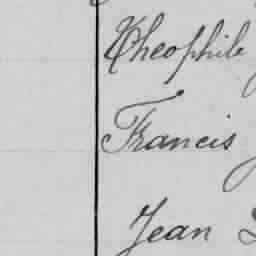 Theophile
Francis
Jean